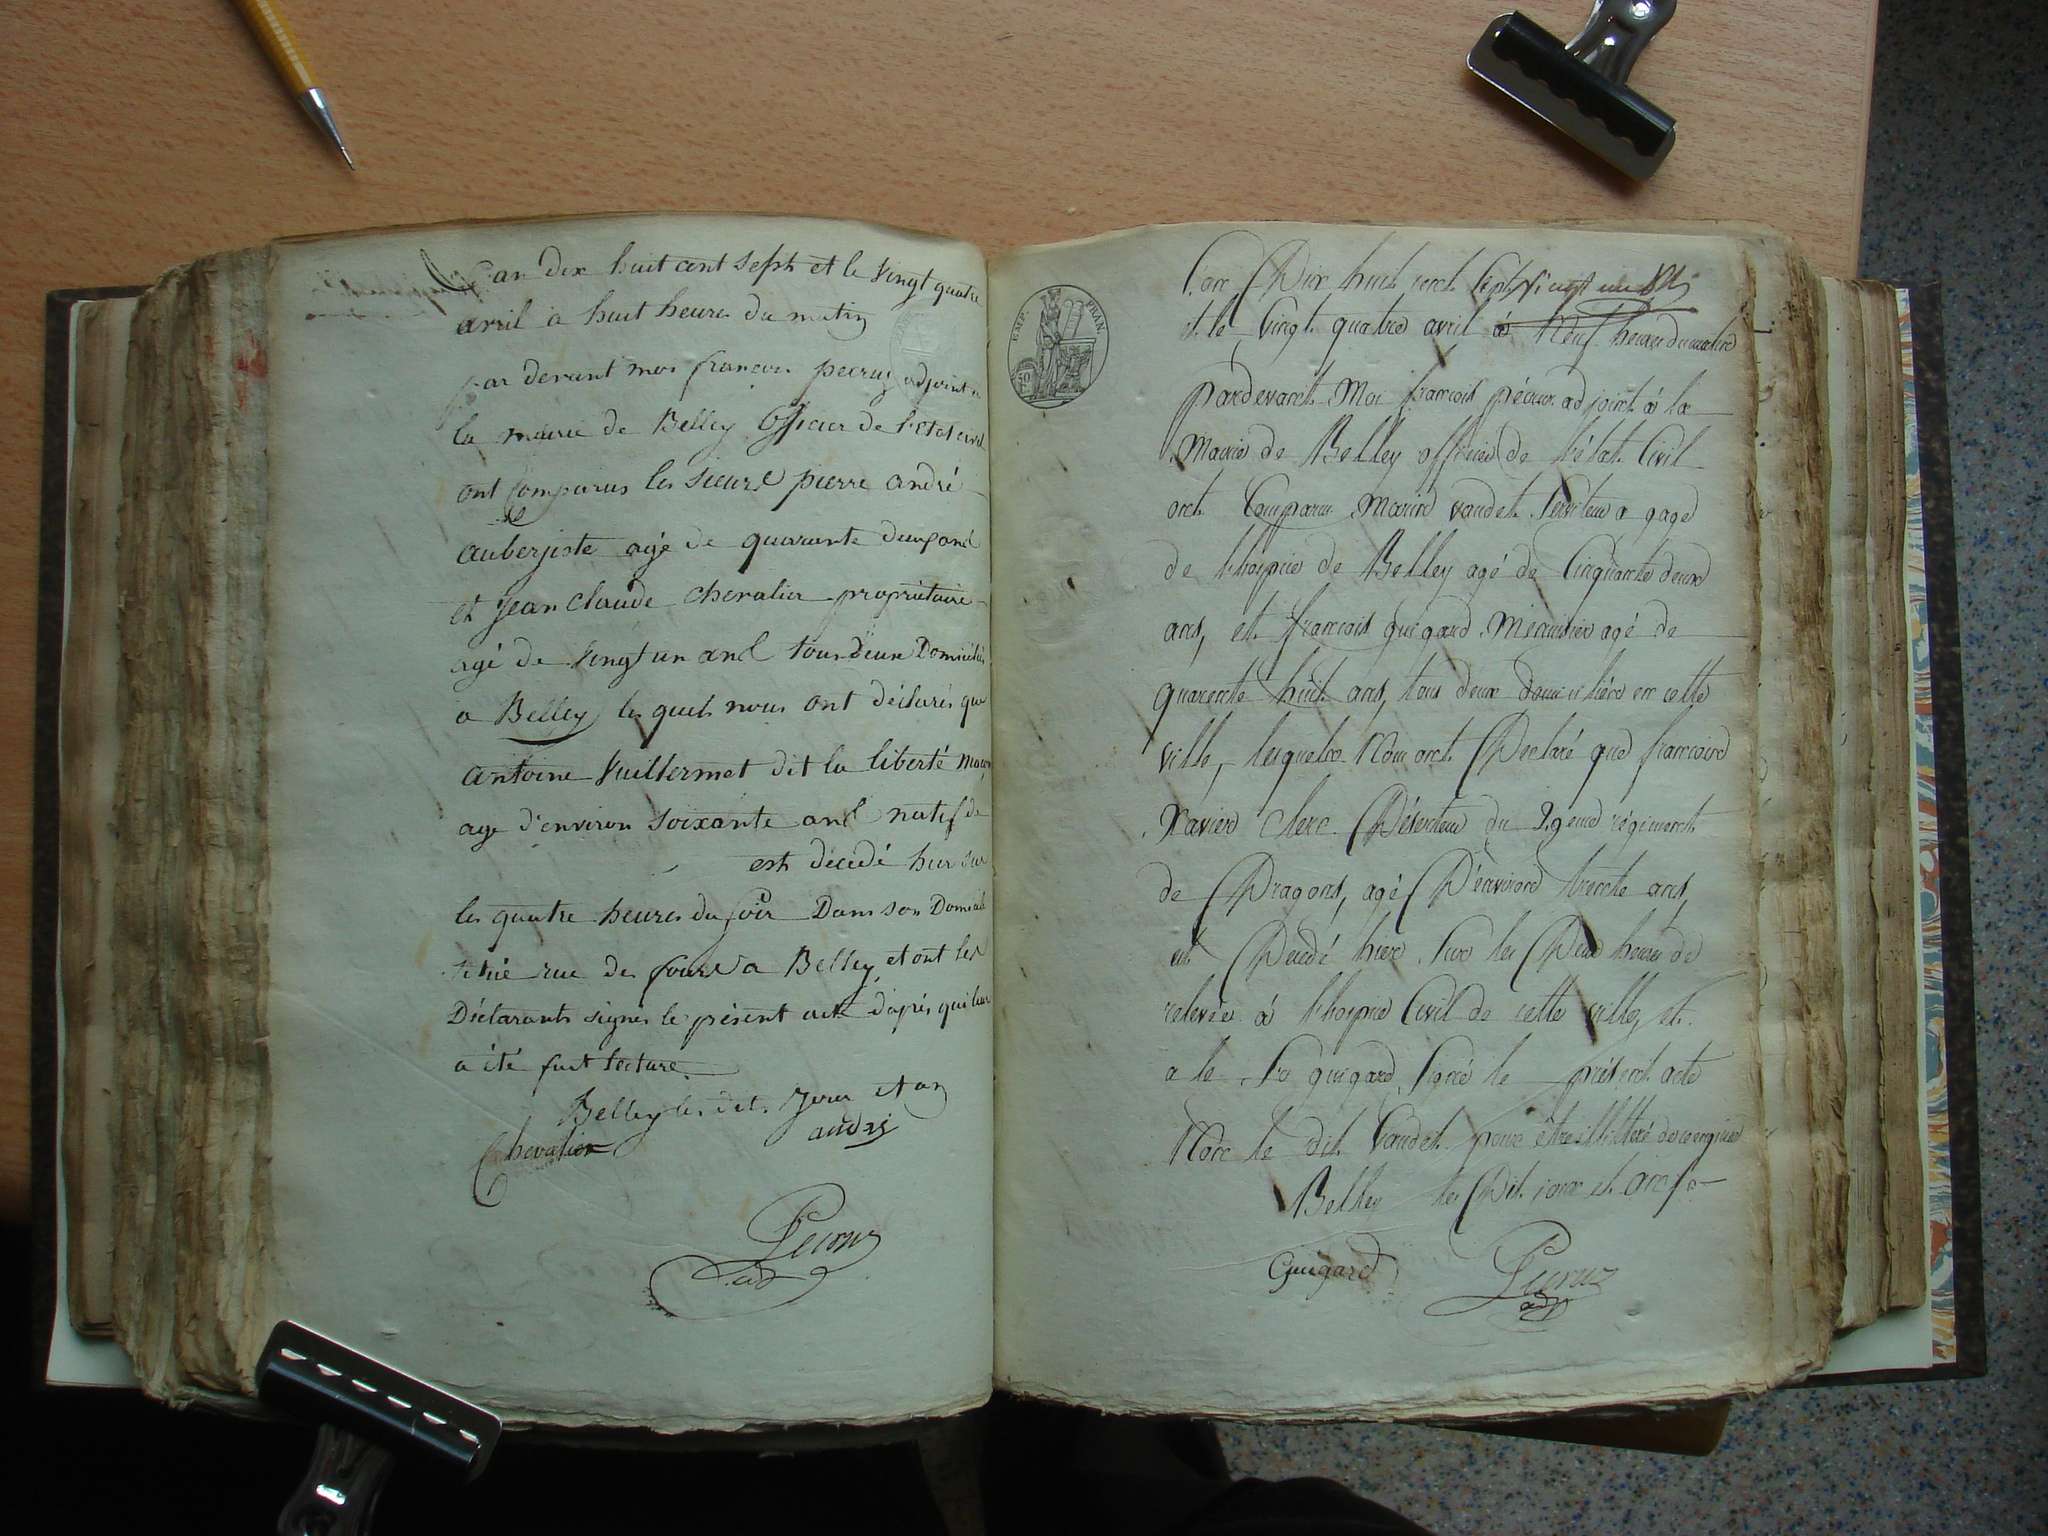 L'an dix huit cent sept et le vingt quatre
avril à huit heures du matin
par devant moi francois pecruz adjoint a
la mairie de Belley Officier de l'état civil
ont comparus les sieurs pierre andré
auberjiste agé de quarante deux ans
et jean claude chevalier propriétaire
agé de vingt un ans tous deux Domiciliés
a Belley les quels nous ont déclarés que
antoine Vuillermet dit la liberté maçon
age d'environ soixante ans natif de
est décédé hier sur
les quatre heures du soir Dans son Domicile
situé rue des fours a Belley et ont les
Déclarants signes le présent acte d'après qui leur
a été fait lecture
Belley les dits jour et an
Chevalier andré
Pecruz
adj
EMP. FRAN.
L'an Dix huit cent Sept
et le vingt quatre avril à Neuf heures du matin
pardevant Moi francois pécruz adjoint à la
Mairie de Belley officier de l'état Civil
ont Comparu vaudet Serviteur a gage
de l'hospice de Belley agé de Cinquante deux
ans, et francois guigard Menuisier agé de
quarante huit ans, tous deux domiciliés en cette
ville, lesquels Nous ont Déclaré que francois
Xavier clerc Déserteur du régiment
de Dragons, agé D'environ trente ans,
est Décédé hier Sur les Deux heures de
relevée à l'hospice Civil de cette ville, et
a le Sr guigard Signé le présent acte
Non le dit Vaudet pour être illitéré de ce enquis
Belley les Dit jour et an
Guigard Pecruz
adj